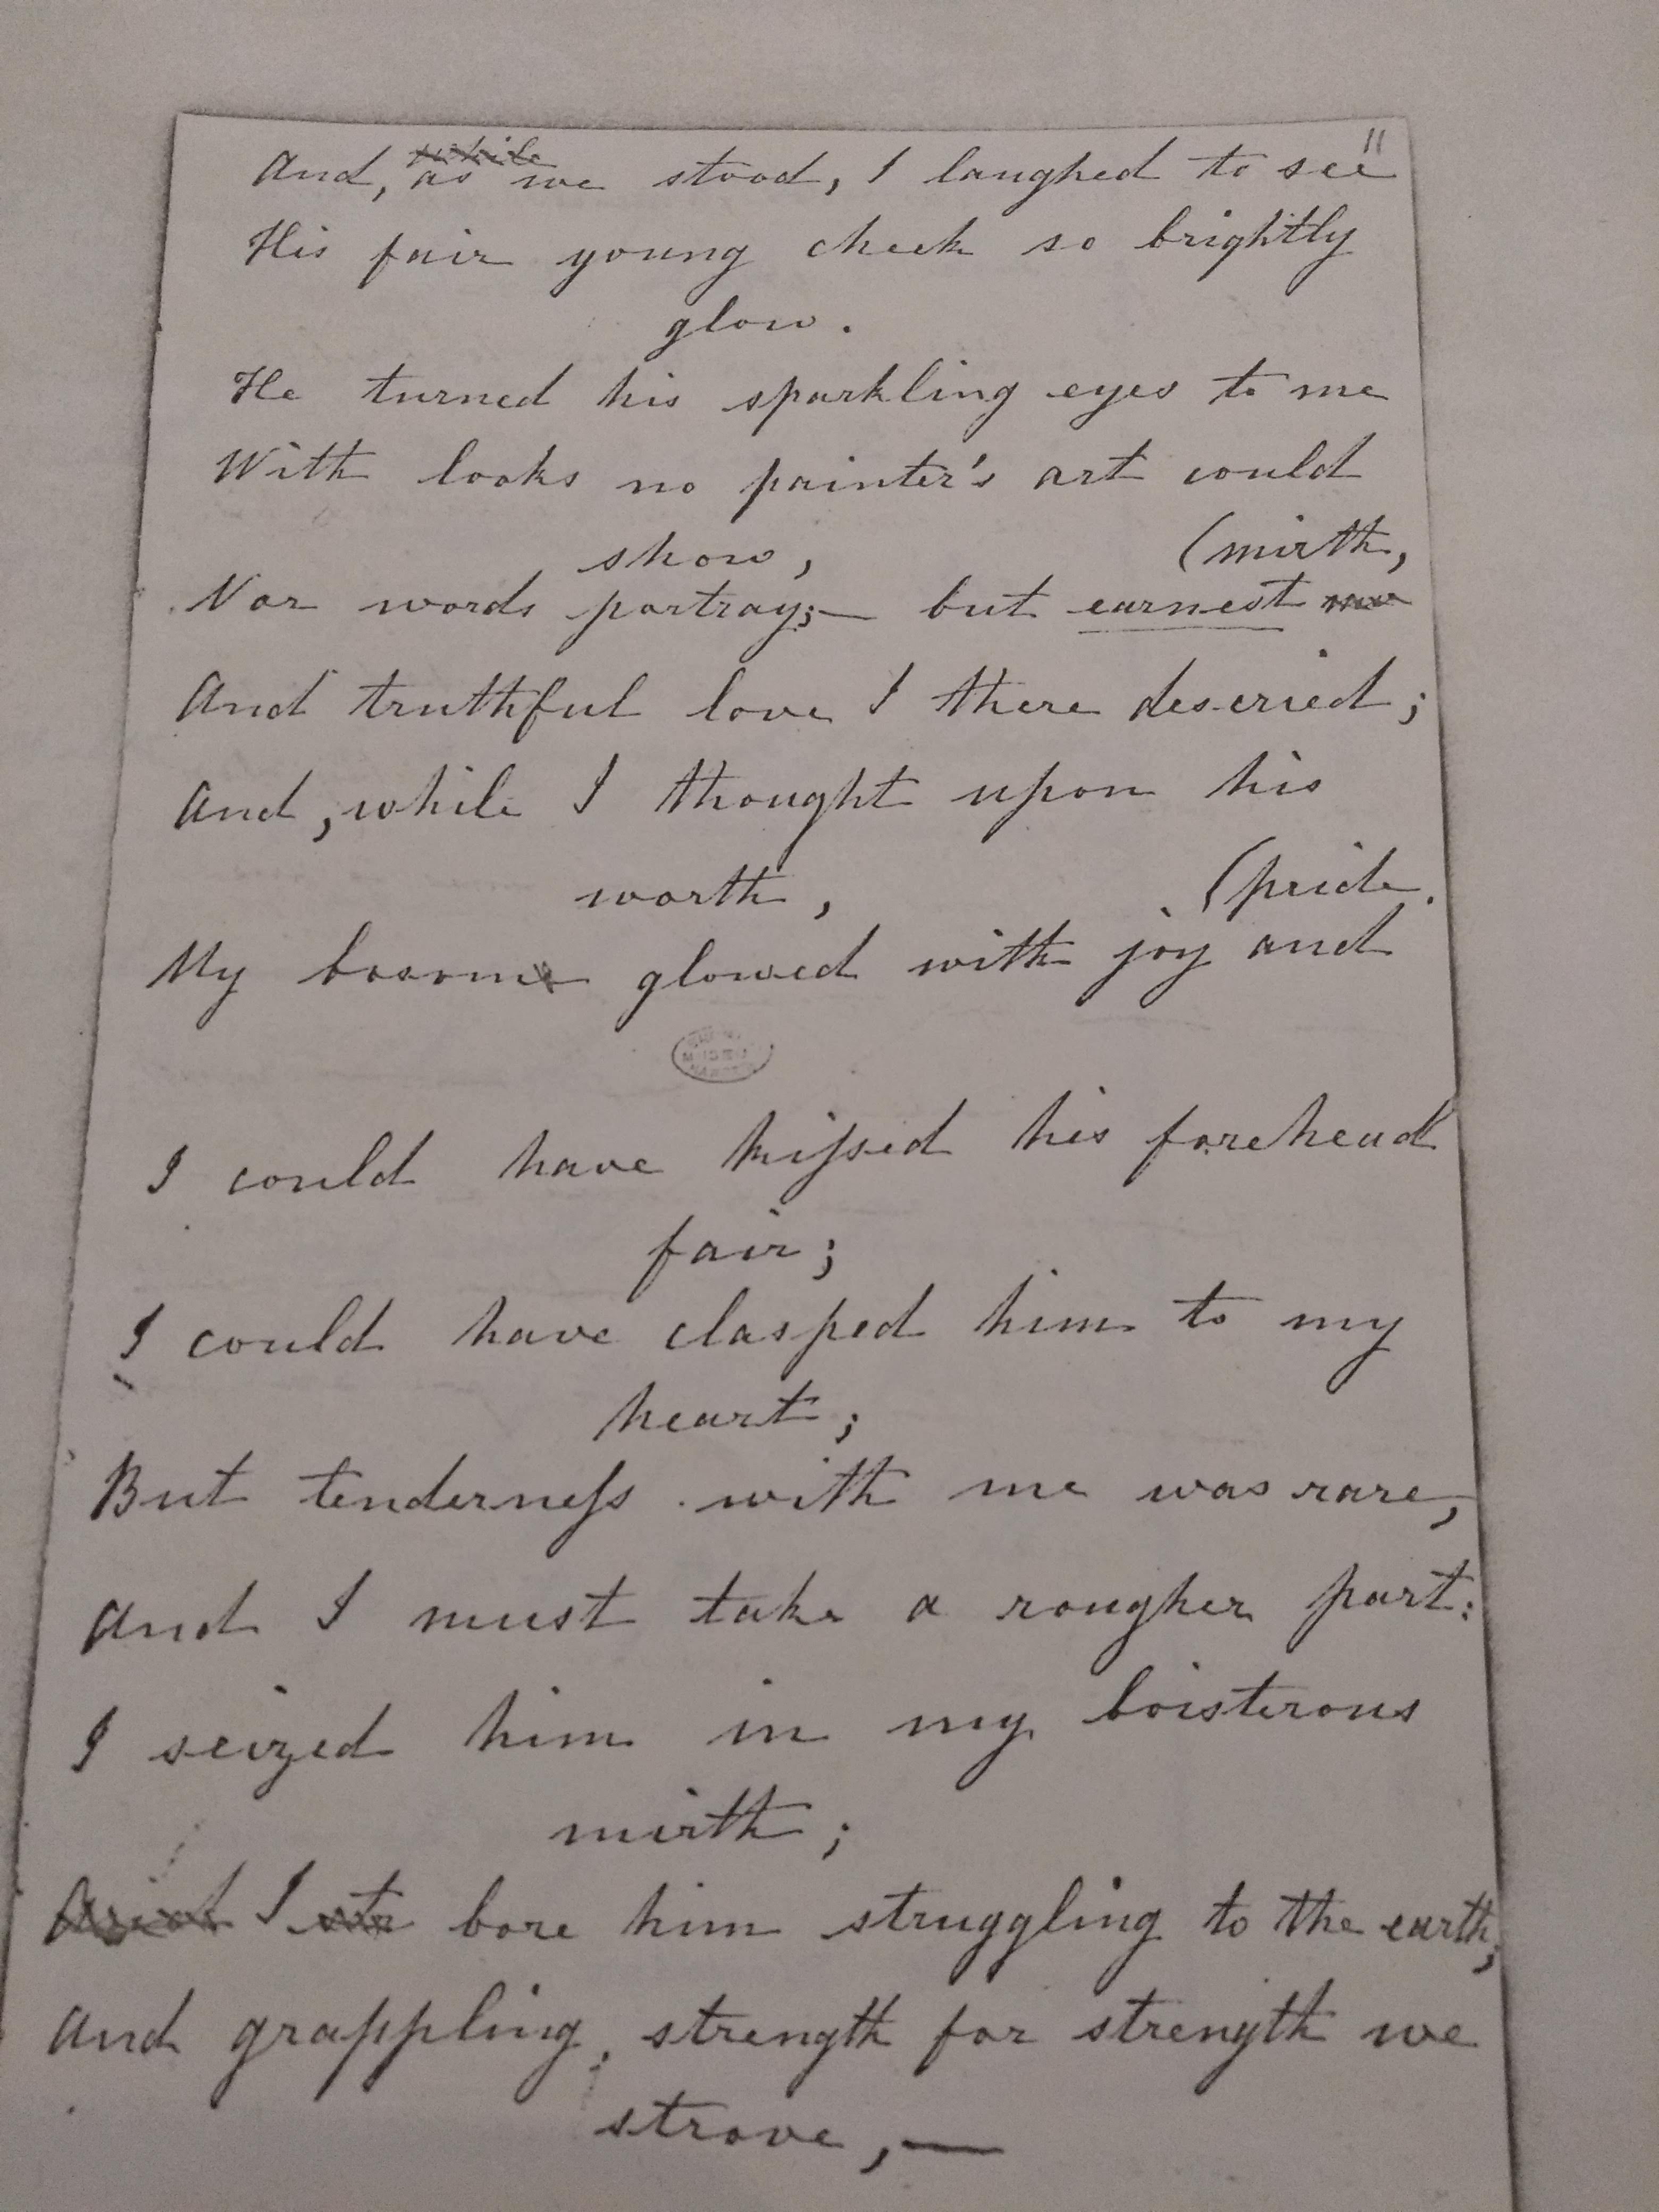 11
And, as ~~while~~ we stood, I laughed to see
His fair young cheek so brightly
glow.
He turned his sparkling eyes to me
With looks no painter's art could
show,
(mirth,
Nor words portray;— but earnest
And truthful love I there descried;
And, while I thought upon his
worth,
(pride.
My bosom glowed with joy and
I could have kiſsed his forehead
fair;
I could have clasped him to my
heart;
But tenderneſs with me was rare,
And I must take a rougher part:
I seized him in my boisterous
mirth;
I bore him struggling to the earth;
And grappling, strength for strength we
strove,—